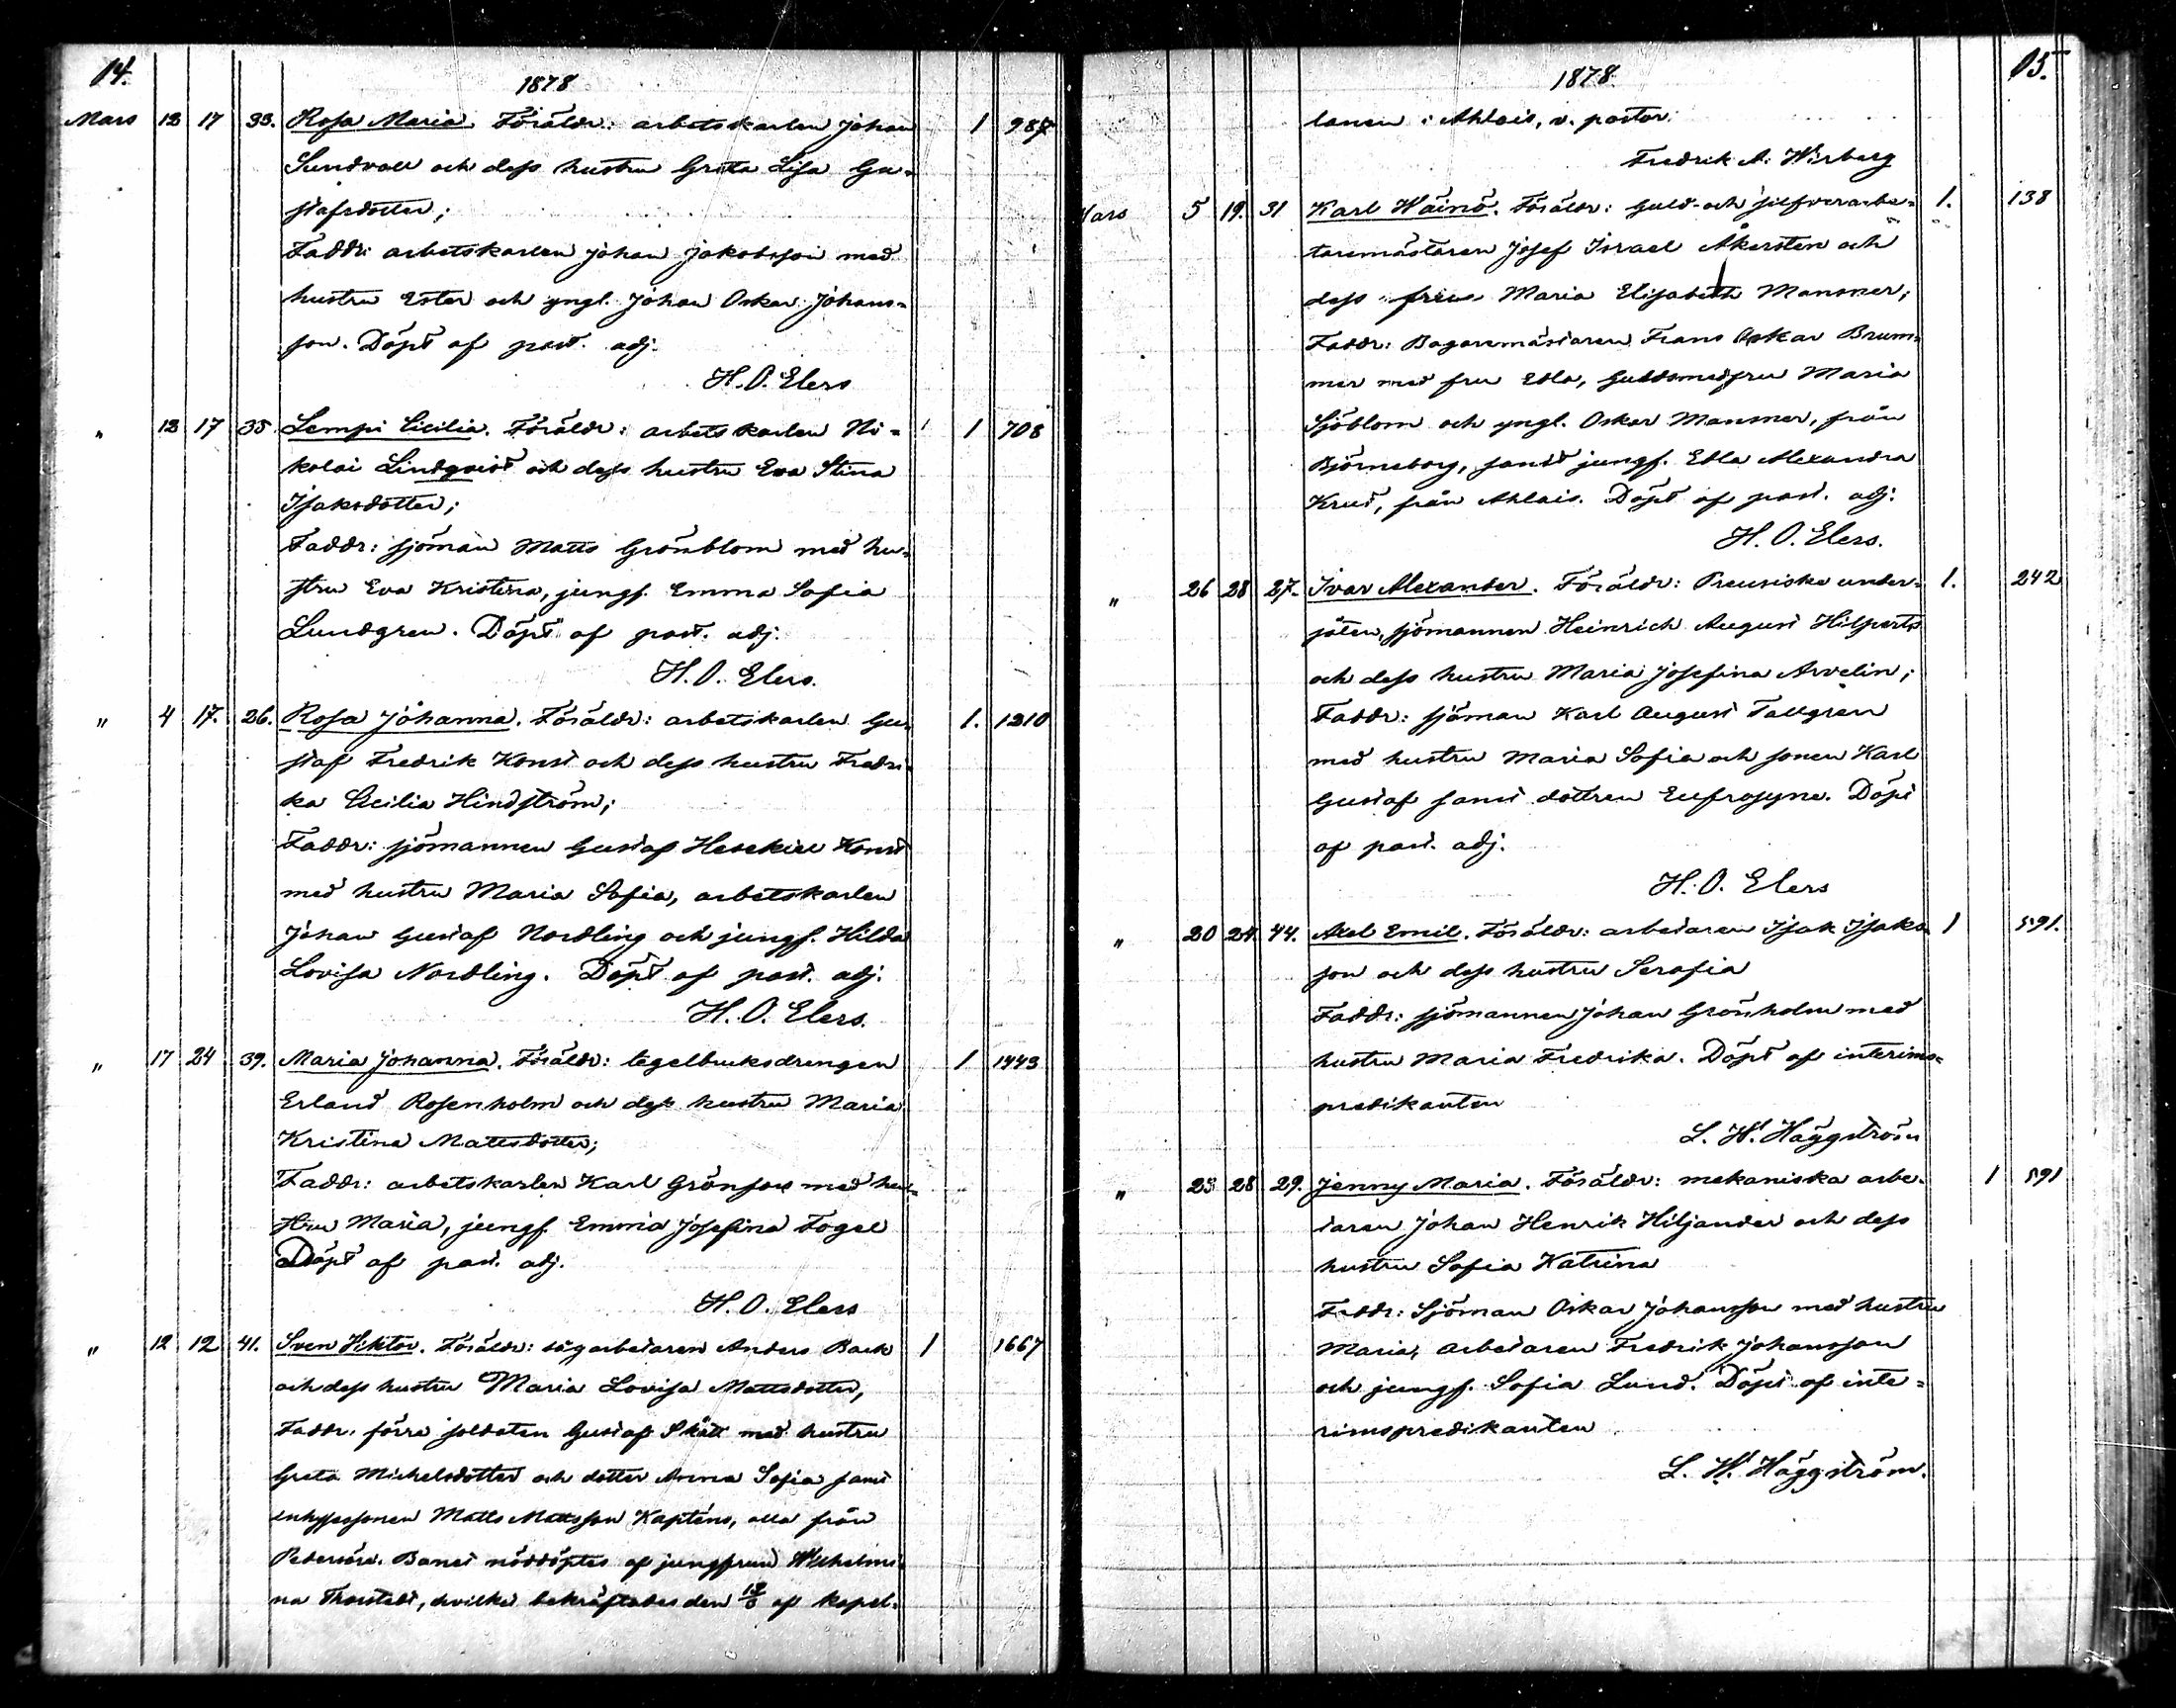 14.
1878
Mars 13 17 33. Rosa Maria. Föräldr: arbetskarlen Johan 1 987
Sundvall och dess hustru Greta Lisa Gu-
stafsdotter;
Faddr: arbetskarlen Johan Jakobsson med
hustru Ester och yngl. Johan Oskar Johans-
son. Döpt af past. adj.
H. O. Elers
" 13 17 35 Lempi Cicilia. Föräldr: arbetskarlen Ni- 1 708
kolai Lindqvist och dess hustru Eva Stina
Isaksdotter;
Faddr: sjöman Matts Grönblom med hu-
stru Eva Kristina, jungf. Emma Sofia
Lundgren. Döpt af past. adj.
H. O. Elers.
" 4 17. 26. Rosa Johanna. Föräldr: arbetskarlen Gu- 1. 1210
staf Fredrik Konst och dess hustru Fredri-
ka Cecilia Hindström;
Faddr: sjömannen Gustaf Hesekiel Konst
med hustru Maria Sofia, arbetskarlen
Johan Gustaf Nordling och jungf. Hilda
Lovisa Nordling. Döpt af past. adj.
H. O. Elers.
" 17 24 39. Maria Johanna. Föräldr: tegelbruksdrengen 1 1443
Erland Rosenholm och dess hustru Maria
Kristina Mattsdotter;
Faddr: arbetskarlen Karl Grönfors med hu-
stru Maria, jungf. Emma Josefina Fogel
Döpt af past. adj.
H. O. Elers
" 12 12 41. Sven Viktor. Föräldr: sågarbetaren Anders Back 1 1667
och dess hustru Maria Lovisa Mattsdotter,
Faddr. förra soldaten Gustaf Skätt med hustru
Greta Michelsdotter och dotter Anna Sofia samt
inhysessonen Matts Mattsson Kaptens, alla från
Pedersöre. Barnet nöddöptes af jungfrun Wilhelmi-
na Thorstedt, hvilket bekräftades den af kapel-
15.
1878.
lanen i Ahlais, v. pastor
Fredrik A. Wirberg
Mars 5 19. 31 Karl Wäinö. Föräldr: guld- och silfverarbe- 1. 138
taremästaren Josef Israel Åkersten och
dess fru Maria Elisabeth Mansner;
Faddr: Bagaremästaren Frans Oskar Brum-
mer med fru Edla, Guldsmedfru Maria
Sjöblom och yngl. Oskar Mansner, från
Björneborg, samt jungf. Edla Alexandra
Krut, från Ahlais. Döpt af past. adj.
H. O. Elers.
" 26 28 27. Ivar Alexander. Föräldr: Preusiske under- 1. 242
såten, sjömannen Heinrich August Hilperts
och dess hustru Maria Josefina Arvelin;
Faddr: sjöman Karl August Tallgren
med hustru Maria Sofia och sonen Karl
Gustaf samt dottren Eufrosyne. Döpt
af past. adj.
H. O. Elers
" 20 24 44. Axel Emil. Föräldr: arbetaren Isak Isaks- 1 591.
son och dess hustru Serafia
Faddr: sjömannen Johan Grönholm med
hustru Maria Fredrika. Döpt af interims-
predikanten
L. W. Häggström
" 23 28 29. Jenny Maria. Föräldr: mekaniska arbe- 1 591
taren Johan Henrik Hiljander och dess
hustru Sofia Katrina
Faddr: Sjöman Oskar Johansson med hustru
Maria, arbetaren Fredrik Johansson
och jungf. Sofia Lund. Döpt af inte-
rimspredikanten
L. W. Häggström.